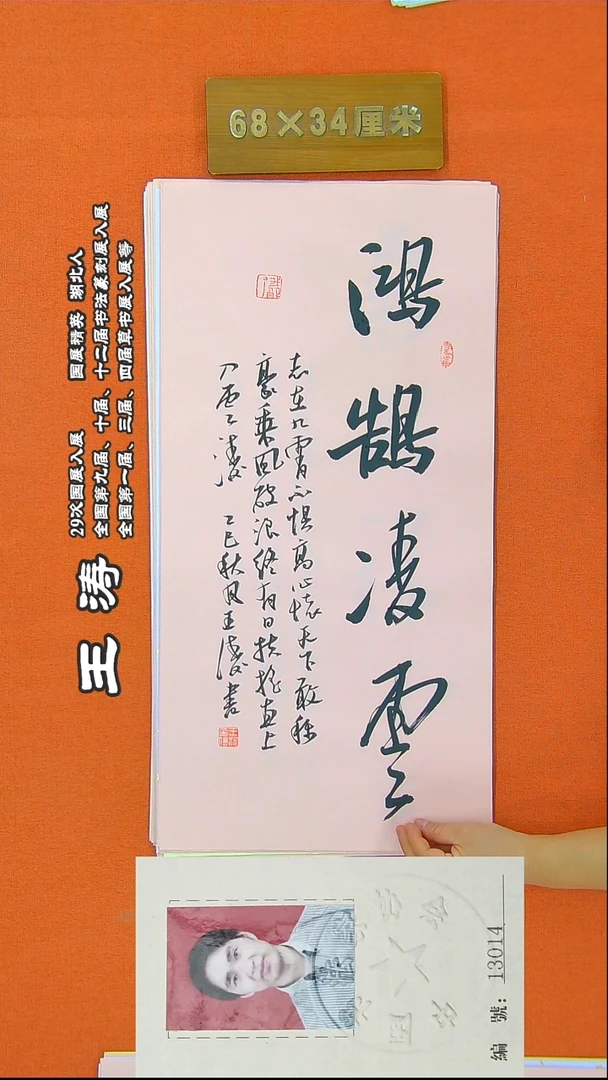 68×34厘米
鴻鵠凌雲
志在九霄不惧高心懷天下敢称
豪乘風破浪终有日扶摇直上
入雲涛 乙巳秋月王涛書
王涛
29次国展入展 国展精英 湖北人
全国第九届、十届、十二届书法篆刻展入展
全国第一届、三届、四届草书展入展等
編 號：13014